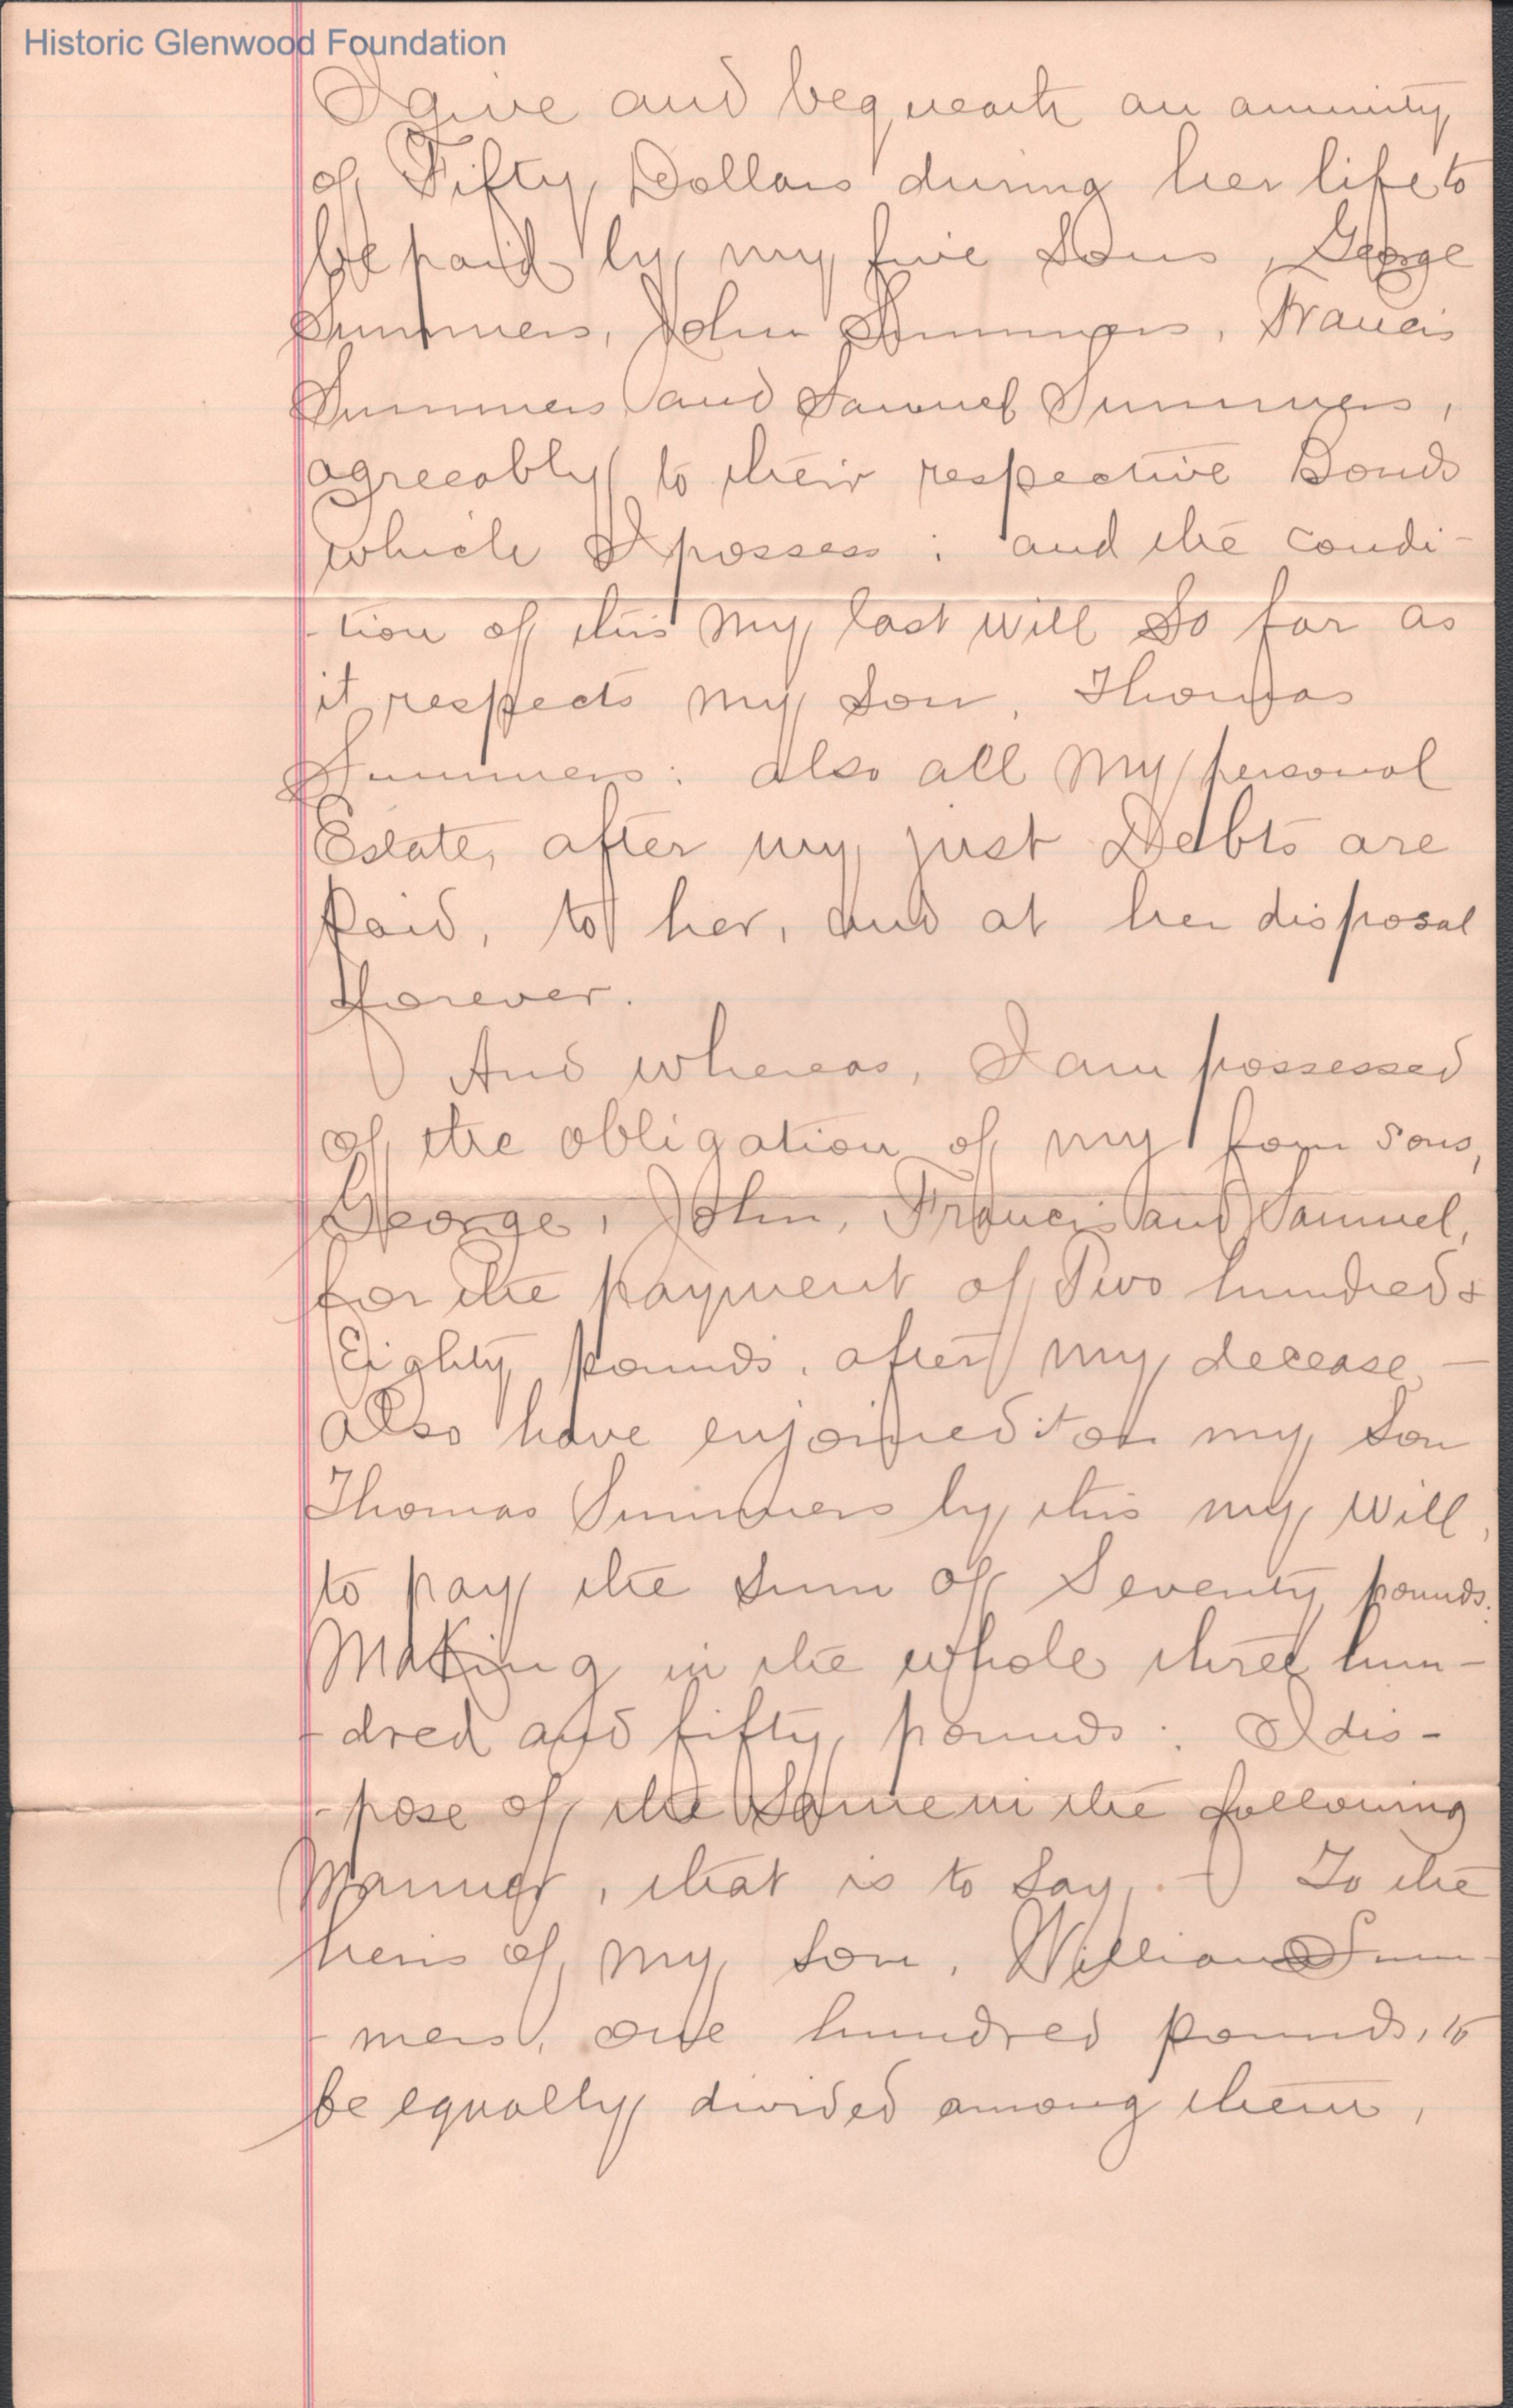 Historic Glenwood Foundation
I give and bequeath an annuity
of Fifty Dollars during her life to
be paid by my five Sons, George
Summers, John Summers, Francis
Summers and Samuel Summers,
agreeably to their respective Bonds
which I possess : and the condi-
-tion of this my last will So far as
it respects my Son, Thomas
Summers : also all my personal
Estate, after my just Debts are
paid, to her, and at her disposal
forever.
And whereas, I am possessed
of the obligation of my four sons,
George, John, Francis and Samuel,
for the payment of Two hundred &
Eighty pounds, after my decease, -
also have enjoined it on my Son
Thomas Summers by this my will,
to pay the Sum of Seventy pounds.
Making in the whole three hun-
-dred and fifty pounds : I dis-
-pose of the Same in the following
Manner, that is to Say. - To the
heirs of my Son, William Sum-
-mers, one hundred pounds, to
be equally divided among them,